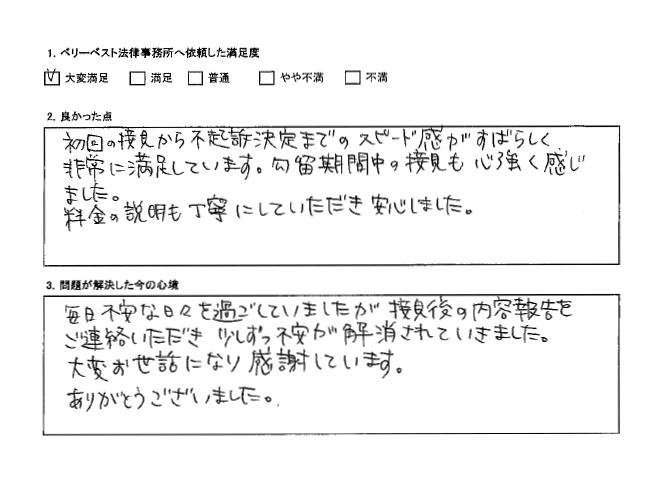 1. ベリーベスト法律事務所へ依頼した満足度
☑ 大変満足 □ 満足 □ 普通 □ やや不満 □ 不満
2. 良かった点
初回の接見から不起訴決定までのスピード感がすばらしく
非常に満足しています。勾留期間中の接見も心強く感じ
ました。
料金の説明も丁寧にしていただき安心しました。
3. 問題が解決した今の心境
毎日不安な日々を過ごしていましたが接見後の内容報告を
ご連絡いただき少しずつ不安が解消されていきました。
大変お世話になり感謝しています。
ありがとうございました。